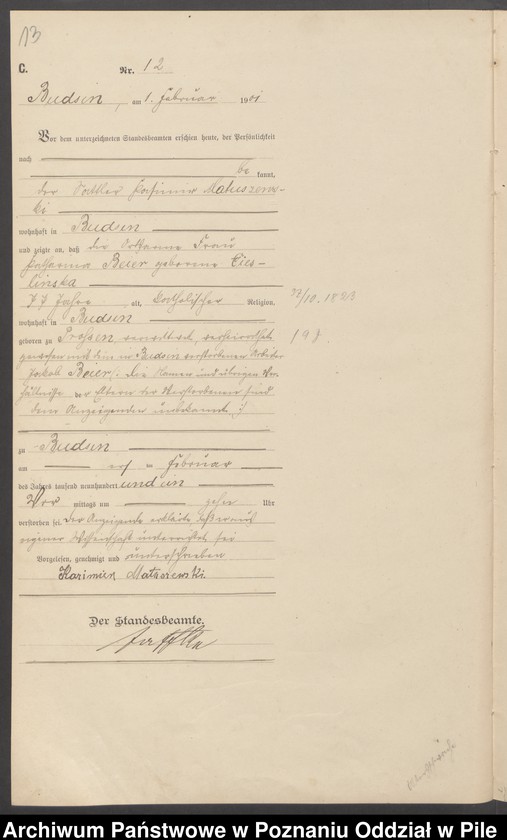 13
C. Nr. 12
Budsin, am 1. Februar 1901
Vor dem unterzeichneten Standesbeamten erschien heute, der Persönlichkeit
nach
be kannt,
der Sattler Kasimir Matuszews-
ki
wohnhaft in Budsin
und zeigte an, daß die Frau
Katharina Beier geborene Cies-
linska
77 Jahre alt, katholischer Religion,
27/10. 1823
wohnhaft in Budsin
geboren zu verwittwet, verheirathet
gewesen mit dem in Budsin verstorbenen Arbeiter
Jakob Beier. Die Namen und übrigen Ver-
hältnisse der Eltern der Verstorbenen sind
dem Anzeigenden unbekannt
zu Budsin
am Februar
des Jahres tausend neunhundert und ein
Vor mittags um zehn Uhr
verstorben sei. Der Anzeigende erklärte daß er aus
eigener Wissenschaft unterrichtet sei
Vorgelesen, genehmigt und unterschrieben
Kazimier Matuszewski.
Der Standesbeamte.
Archiwum Państwowe w Poznaniu Oddział w Pile